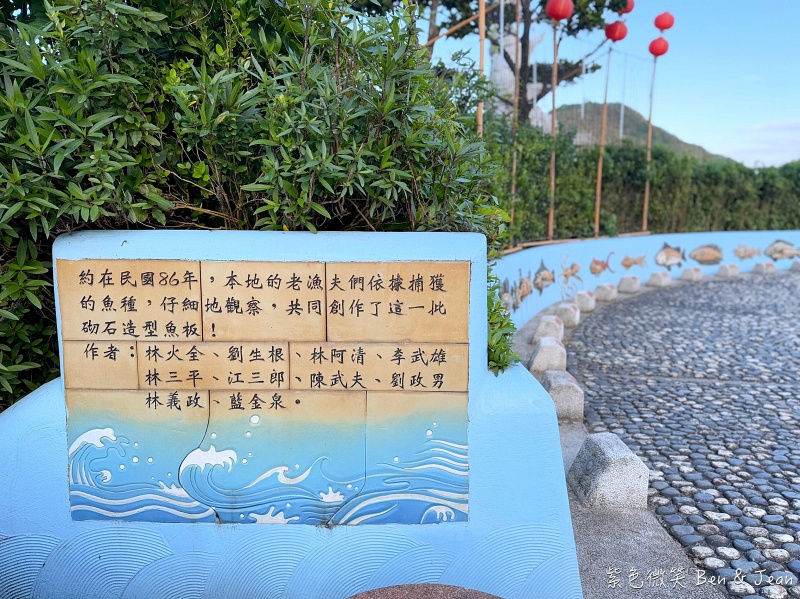 約在民國86年，本地的老漁夫們依據捕獲
的魚種，仔細地觀察，共同創作了這一批
砌石造型魚板！
作者：林火全、劉生根、林阿清、李武雄
林三平、江三郎、陳武夫、劉政男
林義政、藍金泉。
紫色微笑 Ben & Jean